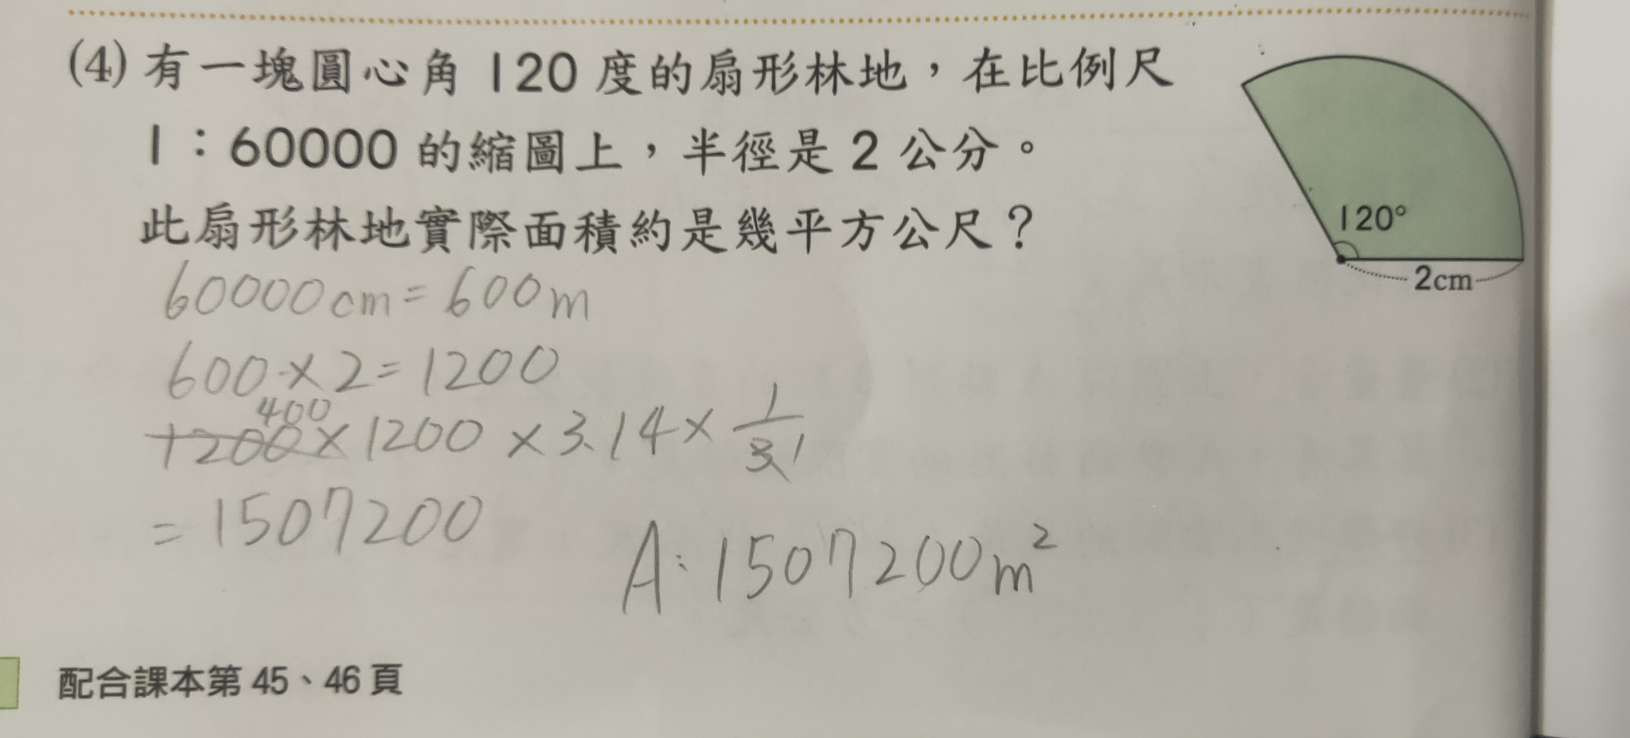 (4) 有一塊圓心角 120 度的扇形林地，在比例尺
1：60000 的縮圖上，半徑是 2 公分。
此扇形林地實際面積約是幾平方公尺？
120°
2cm
60000cm=600m
600×2=1200
400
1200×1200×3.14×1/3 1
=1507200
A:1507200m²
配合課本第 45、46 頁